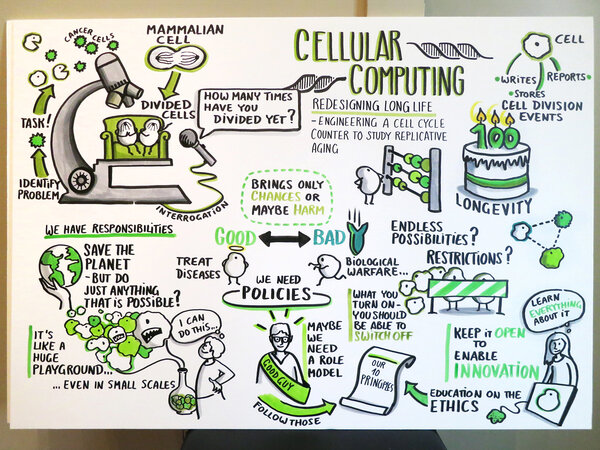 CANCER
CELLS
MAMMALIAN
CELL
CELLULAR
COMPUTING
REDESIGNING LONG LIFE
- ENGINEERING A CELL CYCLE
COUNTER TO STUDY REPLICATIVE
AGING
CELL
WRITES
REPORTS
STORES
CELL DIVISION
EVENTS
TASK!
IDENTIFY
PROBLEM
DIVIDED
CELLS
HOW MANY TIMES
HAVE YOU
DIVIDED YET?
INTERROGATION
100
LONGEVITY
BRINGS ONLY
CHANCES OR
MAYBE HARM
GOOD
BAD
TREAT
DISEASES
BIOLOGICAL
WARFARE...
WE NEED
POLICIES
WE HAVE RESPONSIBILITIES
SAVE THE
PLANET
- BUT DO
JUST ANYTHING
THAT IS POSSIBLE?
I CAN
DO THIS...
IT'S
LIKE A
HUGE
PLAYGROUND...
... EVEN IN SMALL SCALES
GOOD GUY
MAYBE
WE
NEED A
ROLE
MODEL
FOLLOW THOSE
OUR
10
PRINCIPLES
ENDLESS
POSSIBILITIES?
RESTRICTIONS?
WHAT YOU
TURN ON -
YOU SHOULD
BE ABLE TO
SWITCH OFF
KEEP IT OPEN
TO
ENABLE
INNOVATION
LEARN
EVERYTHING
ABOUT IT
EDUCATION ON THE
ETHICS